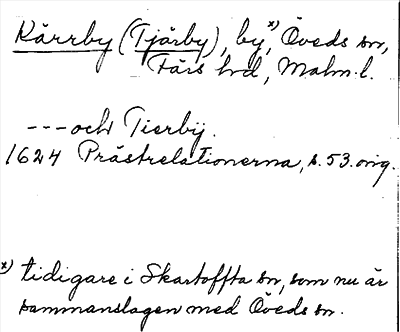 Kärrby (Tjärby), by x), Öveds sn,
Färs hd, Malm.l.
---och Tierbÿ.
1624 Prästrelationerna, s.53.orig.
x) tidigare i Skartoffta sn, som nu är
sammanslagen med Öveds sn.